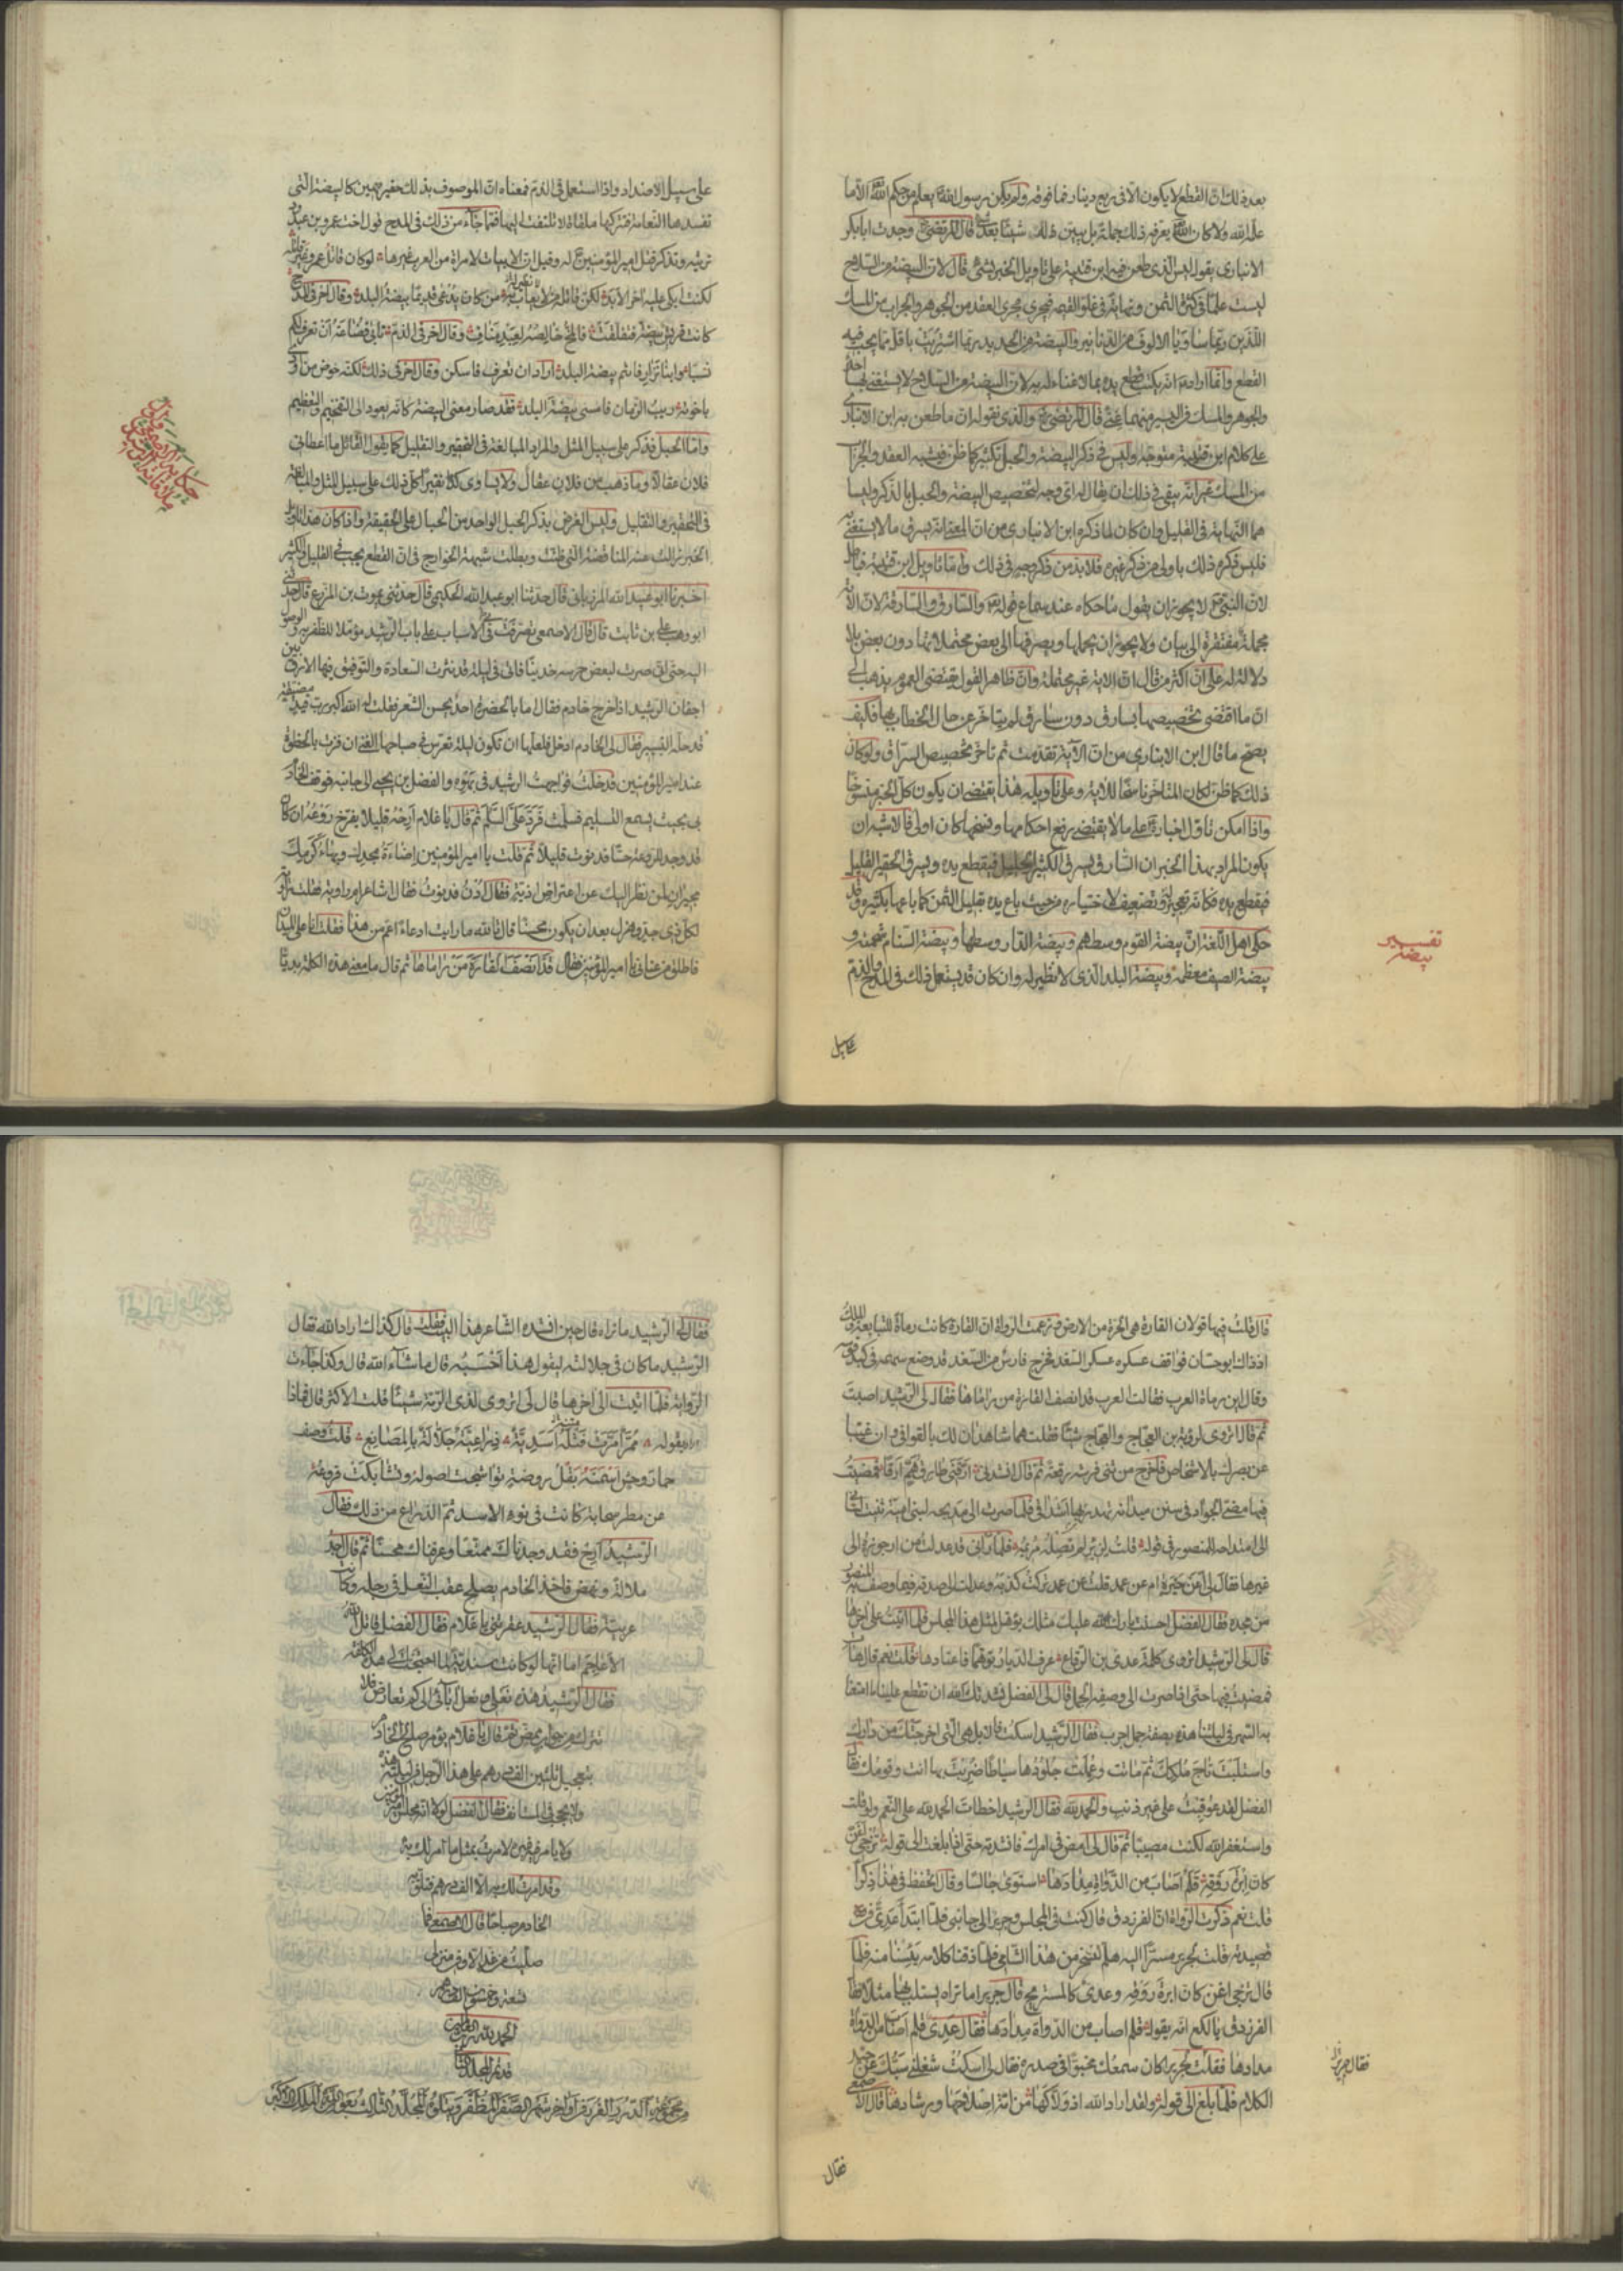 بعد ذلك ان القطع لا يكون الا فى ربع دينار فما فوقه ولم يكن رسول الله يعلم من حكم الله الا ما
علمه الله ولا كان الله يعرفه ذلك جملة بل يبين ذلك شيئا بعد شئ قال المرتضى وجدت ابا بكر
الانبارى يقول ليس الذى طعن فيه ابن قتيبة على تاويل الخبر بشئ قال لان البيضة من السلاح
ليست علما فى كثرة الثمن ونهاية فى غلو القيمة فتجرى مجرى العقد من الجوهر والجراب من المسك
اللذين ربما ساويا الالوف من الدنانير والبيضة من الحديد ربما اشتريت باقل مما يجب فيه
القطع وانما اراد انه يكتسب قطع يده بما لا غناء له به لان البيضة من السلاح لا يستغنى بها احد
والجوهر والمسك فى اليسير منهما غنى قال المرتضى والذى نقوله ان ما طعن به ابن الانبارى
على كلام ابن قتيبة متوجه وليس فى ذكر البيضة والحبل تكثير كما ظن فيشبه العقد والجراب
من المسك غير انه يبقى فى ذلك ان يقال له اى وجه لتخصيص البيضة والحبل بالذكر وليسا
هما النهاية فى القليل وان كان لما ذكره ابن الانبارى من ان المعنى انه يسرق ما لا يستغنى به
فليس ذكره ذلك باولى من ذكر غيره فلا بد من ذكر وجه فى ذلك واما تاويل ابن قتيبة فباطل
لان النبى لا يجوز ان يقول ما حكاه عند سماع قوله والسارق والسارقة لان الاية
مجملة مفتقرة الى بيان ولا يجوز ان يحملها ويصرفها الى بعض محتملاتها دون بعض بلا
دلالة له على ان اكثر من قال ان الاية غير مجملة وان ظاهر القول يقتضى العموم يذهب الى
ان ما اقتضى تخصيصها بسارق دون سارق لم يتاخر عن حال الخطاب بها فكيف
يصح ما قال ابن الانبارى من ان الآية تقدمت ثم تاخر تخصيص السراق ولو كان
ذلك كما ظن لكان المتاخر ناسخا للآية وعلى تاويله هذا يقتضى ان يكون كل الخبر منسوخا
واذا امكن تاول اخباره على ما لا يقتضى رفع احكامها ونسخها كان اولى فالاشبه ان
يكون المراد بهذا الخبر ان السارق يسرق الكثير الجليل فيقطع يده ويسرق الحقير القليل
فيقطع يده فكانه تعجيز وتضعيف لاختياره من حيث باع يده بقليل الثمن كما باعها بكثيره وقد
حكى اهل اللغة ان بيضة القوم وسطهم وبيضة الدار وسطها وبيضة السنام شحمته و
بيضة الصيف معظمه وبيضة البلد الذى لا نظير له وان كان قد يستعمل ذلك فى المدح والذم
تفسير
بيضة
على سبيل
على سبيل الاضداد واذا استعمل فى الذم فمعناه ان الموصوف بذلك حقير مهين كالبيضة التى
تفسدها النعامة فتتركها ملقاة لا تلتفت اليها فمما جاء من ذلك فى المدح قول اخت عمرو بن عبد ود
ترثيه وتذكر قتل امير المؤمنين له وقيل ان الابيات لامراة من العرب غيرها لو كان قاتل عمرو غير قاتله
لكنت ابكى عليه اخر الابد لكن قاتله من لا يعاب به من كان يدعى قديما بيضة البلد وقال آخر فى المدح
كانت قريش بيضة فتفلقت فالمح خالصه لعبد مناف وقال آخر فى الذم تابى قضاعة ان تعرف لكم
نسبا وابنا نزار فانتم بيضة البلد اراد ان تعرف فاسكن وقال آخر فى ذلك لكنه حوض من اودى
باخوته ريب الزمان فامسى بيضة البلد فقد صار معنى البيضة كله يعود الى التفخيم والتعظيم
واما الحبل فذكر على سبيل المثل والمراد المبالغة فى التحقير والتقليل كما يقول القائل ما اعطانى
فلان عقالا وما ذهب من فلان عقال ولا يساوى كذا نقيرا كل ذلك على سبيل المثل والمبالغة
فى التحقير والتقليل وليس الغرض بذكر الحبل الواحد من الحبال على الحقيقة واذا كان هذا تاويل
الخبر زالت عنه المناقضة التى ظنت وبطلت شبهة الخوارج فى ان القطع يجب فى القليل والكثير
اخبرنا ابو عبيد الله المرزبانى قال حدثنا ابو عبد الله الحكيمى قال حدثنى يموت بن المزرع قال حدثنى
ابو وهب على بن ثابت قال قال الاصمعى تصرفت فى الاسباب على باب الرشيد مؤملا للظفر به والوصول
اليه حتى انى صرت لبعض حرسه خدينا فانى فى ليلة قد نثرت السعادة والتوفيق فيها الارق بين
اجفان الرشيد اذ خرج خادم فقال ما بالحضرة احد يحسن الشعر فقلت الله اكبر رب قيد مضيقة
قد حله التيسير فقال لى الخادم ادخل فلعلها ان تكون ليلة تعرس فى صباحها الغنى ان فزت بالحظوة
عند امير المؤمنين فدخلت فواجهت الرشيد فى بهوه والفضل بن يحيى الى جانبه فوقف الخادم
بى بحيث يسمع التسليم فسلمت فرد على السلم ثم قال يا غلام ارحه قليلا يفرخ روعه ان كان
قد وجد للروعة حسا فدنوت قليلا ثم قلت يا امير المؤمنين اضاءة مجدك وبهاء كرمك
مجيران لمن نظر اليك عن اعتراض اذية فقال ادن فدنوت فقال اشاعر ام راوية فقلت راوية
لكل ذى جد وهزل بعد ان يكون محسنا قال تالله ما رايت ادعاء اعم من هذا فقلت انا على الميدان
فاطلق من عنانى يا امير المؤمنين فقال قد انصف القارة من راماها ثم قال ما معنى هذه الكلمة بديا
قال قلت فيها قولان القارة هى الحرة من الارض وزعمت الرواة ان القارة كانت رماة للتبابعة والملك
اذ ذاك ابو حسان فواقف عسكره عسكر السغد فخرج فارس من السغد قد وضع سهمه فى كبد قوسه
وقال اين رماة العرب فقالت العرب قد انصف القارة من راماها فقال لى الرشيد اصبت
ثم قال اتروى لرؤبة بن العجاج والعجاج شيئا فقلت هما شاهدان لك بالقوافى وان غيبا
عن بصرك بالاشخاص فاخرج من ثنى فرشه رقعة ثم قال انشدنى ارقنى طارق هم ارقا فمضيت
فيها مضى الجواد فى سنن ميدانه تهدر بها اشداقى فلما صرت الى مديحه لبنى امية ثنيت لسانى
الى امتداحه المنصور فى قوله قلت لزير لم تصله مريمه فلما رآنى قد عدلت من ارجوزة الى
غيرها فقال لى اعن حيرة ام عن عمد قلت عن عمد تركت كذبه وعدلت الى صدقه فيما وصف به المنصور
من مجده فقال الفضل احسنت بارك الله عليك مثلك يؤهل لمثل هذا المجلس فلما اتيت على آخرها
قال لى الرشيد اتروى كلمة عدى بن الرقاع عرف الديار توهما فاعتادها قلت نعم قال هات
فمضيت فيها حتى اذا صرت الى وصف الجمل قال لى الفضل نشدتك الله ان تقطع علينا ما امتعنا
به السهر فى ليلتنا هذه بصفة جمل اجرب فقال الرشيد اسكت فالابل هى التى اخرجتك من دارك
واستلبت تاج ملكك ثم ماتت وعملت جلودها سياطا ضربت بها انت وقومك فقال
الفضل لقد عوقبت على غير ذنب والحمد لله فقال الرشيد اخطات الحمد لله على النعم ولو قلت
واستغفر الله لكنت مصيبا ثم قال لى امض فى امرك فانشدته حتى اذا بلغت الى قوله تزجى اغن
كان ابرة روقه قلم اصاب من الدواة مدادها استوى جالسا وقال اتحفظ فى هذا ذكرا
قلت نعم ذكرت الرواة ان الفرزدق قال كنت فى المجلس وجرير الى جانبى فلما ابتدا عدى فى
قصيدته قلت لجرير مسرا اليه هلم نسخر من هذا الشامى فلما ذقنا كلامه يئسنا منه فلما
قال تزجى اغن كان ابرة روقه وعدى كالمستريح قال جرير اما تراه يستلب بها مثلا فقال
الفرزدق يا لكع انه يقول قلم اصاب من الدواة مدادها فقال عدى قلم اصاب من الدواة
مدادها فقلت لجرير اكان سمعك مخبوا فى صدره فقال لى اسكت شغلنى سبك عن جيد
الكلام فلما بلغ الى قوله ولقد اراد الله اذ ولاكها من امة اصلاحها ورشادها قال الاصمعى
فقال جرير
فقال
فقال لى الرشيد ما تراه قال حين انشده الشاعر هذا البيت فقلت قال كذاك اراد الله فقال
الرشيد ما كان فى جلالته ليقول هذا احسبه قال ما شاء الله قال وكذا جاءت
الرواية فلما اتيت الى آخرها قال لى اتروى لذى الرمة شيئا قلت الاكثر قال فماذا
اراد بقوله ممر امرت فتله اسدية ذراعية حلالة بالمصانع قلت وصف
حمار وحش اسمنه بقل روضة تواشجت اصوله وتشابكت فروعه
من مطر سحابة كانت فى نوء الاسد ثم الذراع من ذلك فقال
الرشيد ارح فقد وجدناك ممتعا وعرفناك محسنا ثم قال اجد
ملالة ونهض فاخذ الخادم يصلح عقب النعل فى رجله وكانت
عربية فقال الرشيد عقرتنى يا غلام فقال الفضل قاتل الله
الاعاجم اما انها لو كانت سندية لما احتجت الى هذه الكلفة
فقال الرشيد هذه نعلى ونعل آبائى كم تعارض فلا
تترك من جواب ممض ثم قال يا غلام يؤمر صالح الخادم
بتعجيل ثلثين الف درهم على هذا الرجل فى ليلته هذه
ولا يحجب فى المستانف فقال الفضل لولا انه مجلس امير المؤمنين
ولا يامر فيه غيره لامرت لك بمثل ما امر لك به
وقد امرت لك به الا الف درهم فتلق
الخادم صباحا قال الاصمعى فما
صليت من غد الا وفى منزلى
تسعة وخمسون الف درهم
الحمد لله رب العالمين